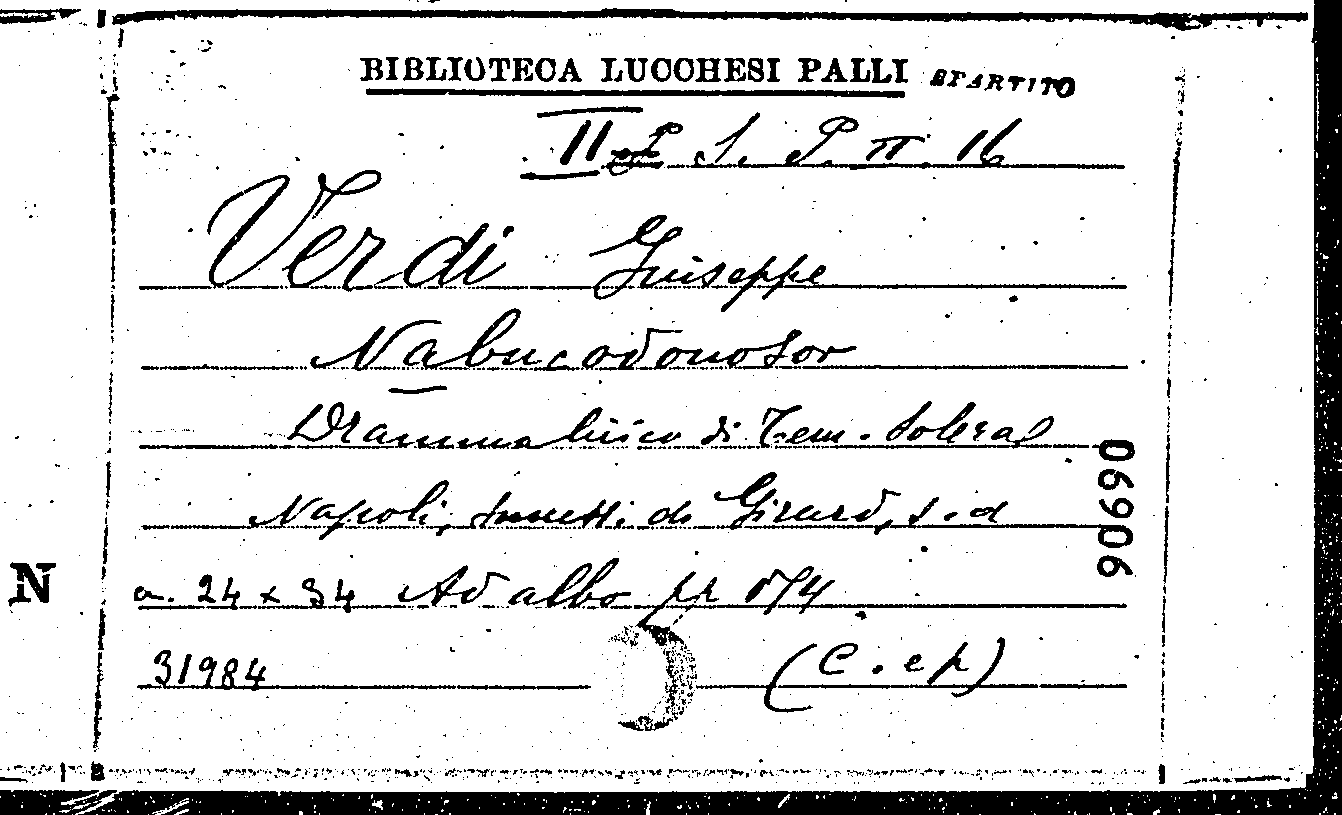 BIBLIOTECA LUCCHESI PALLI SPARTITO
II S. P. II. 16
Verdi Giuseppe
Nabucodonosor
Dramma lirico di Tem. Solera
Napoli, Succ. di Girard, s.d
24 x 34 Ad albo pp 174
31984 (C. e p)
06990
N